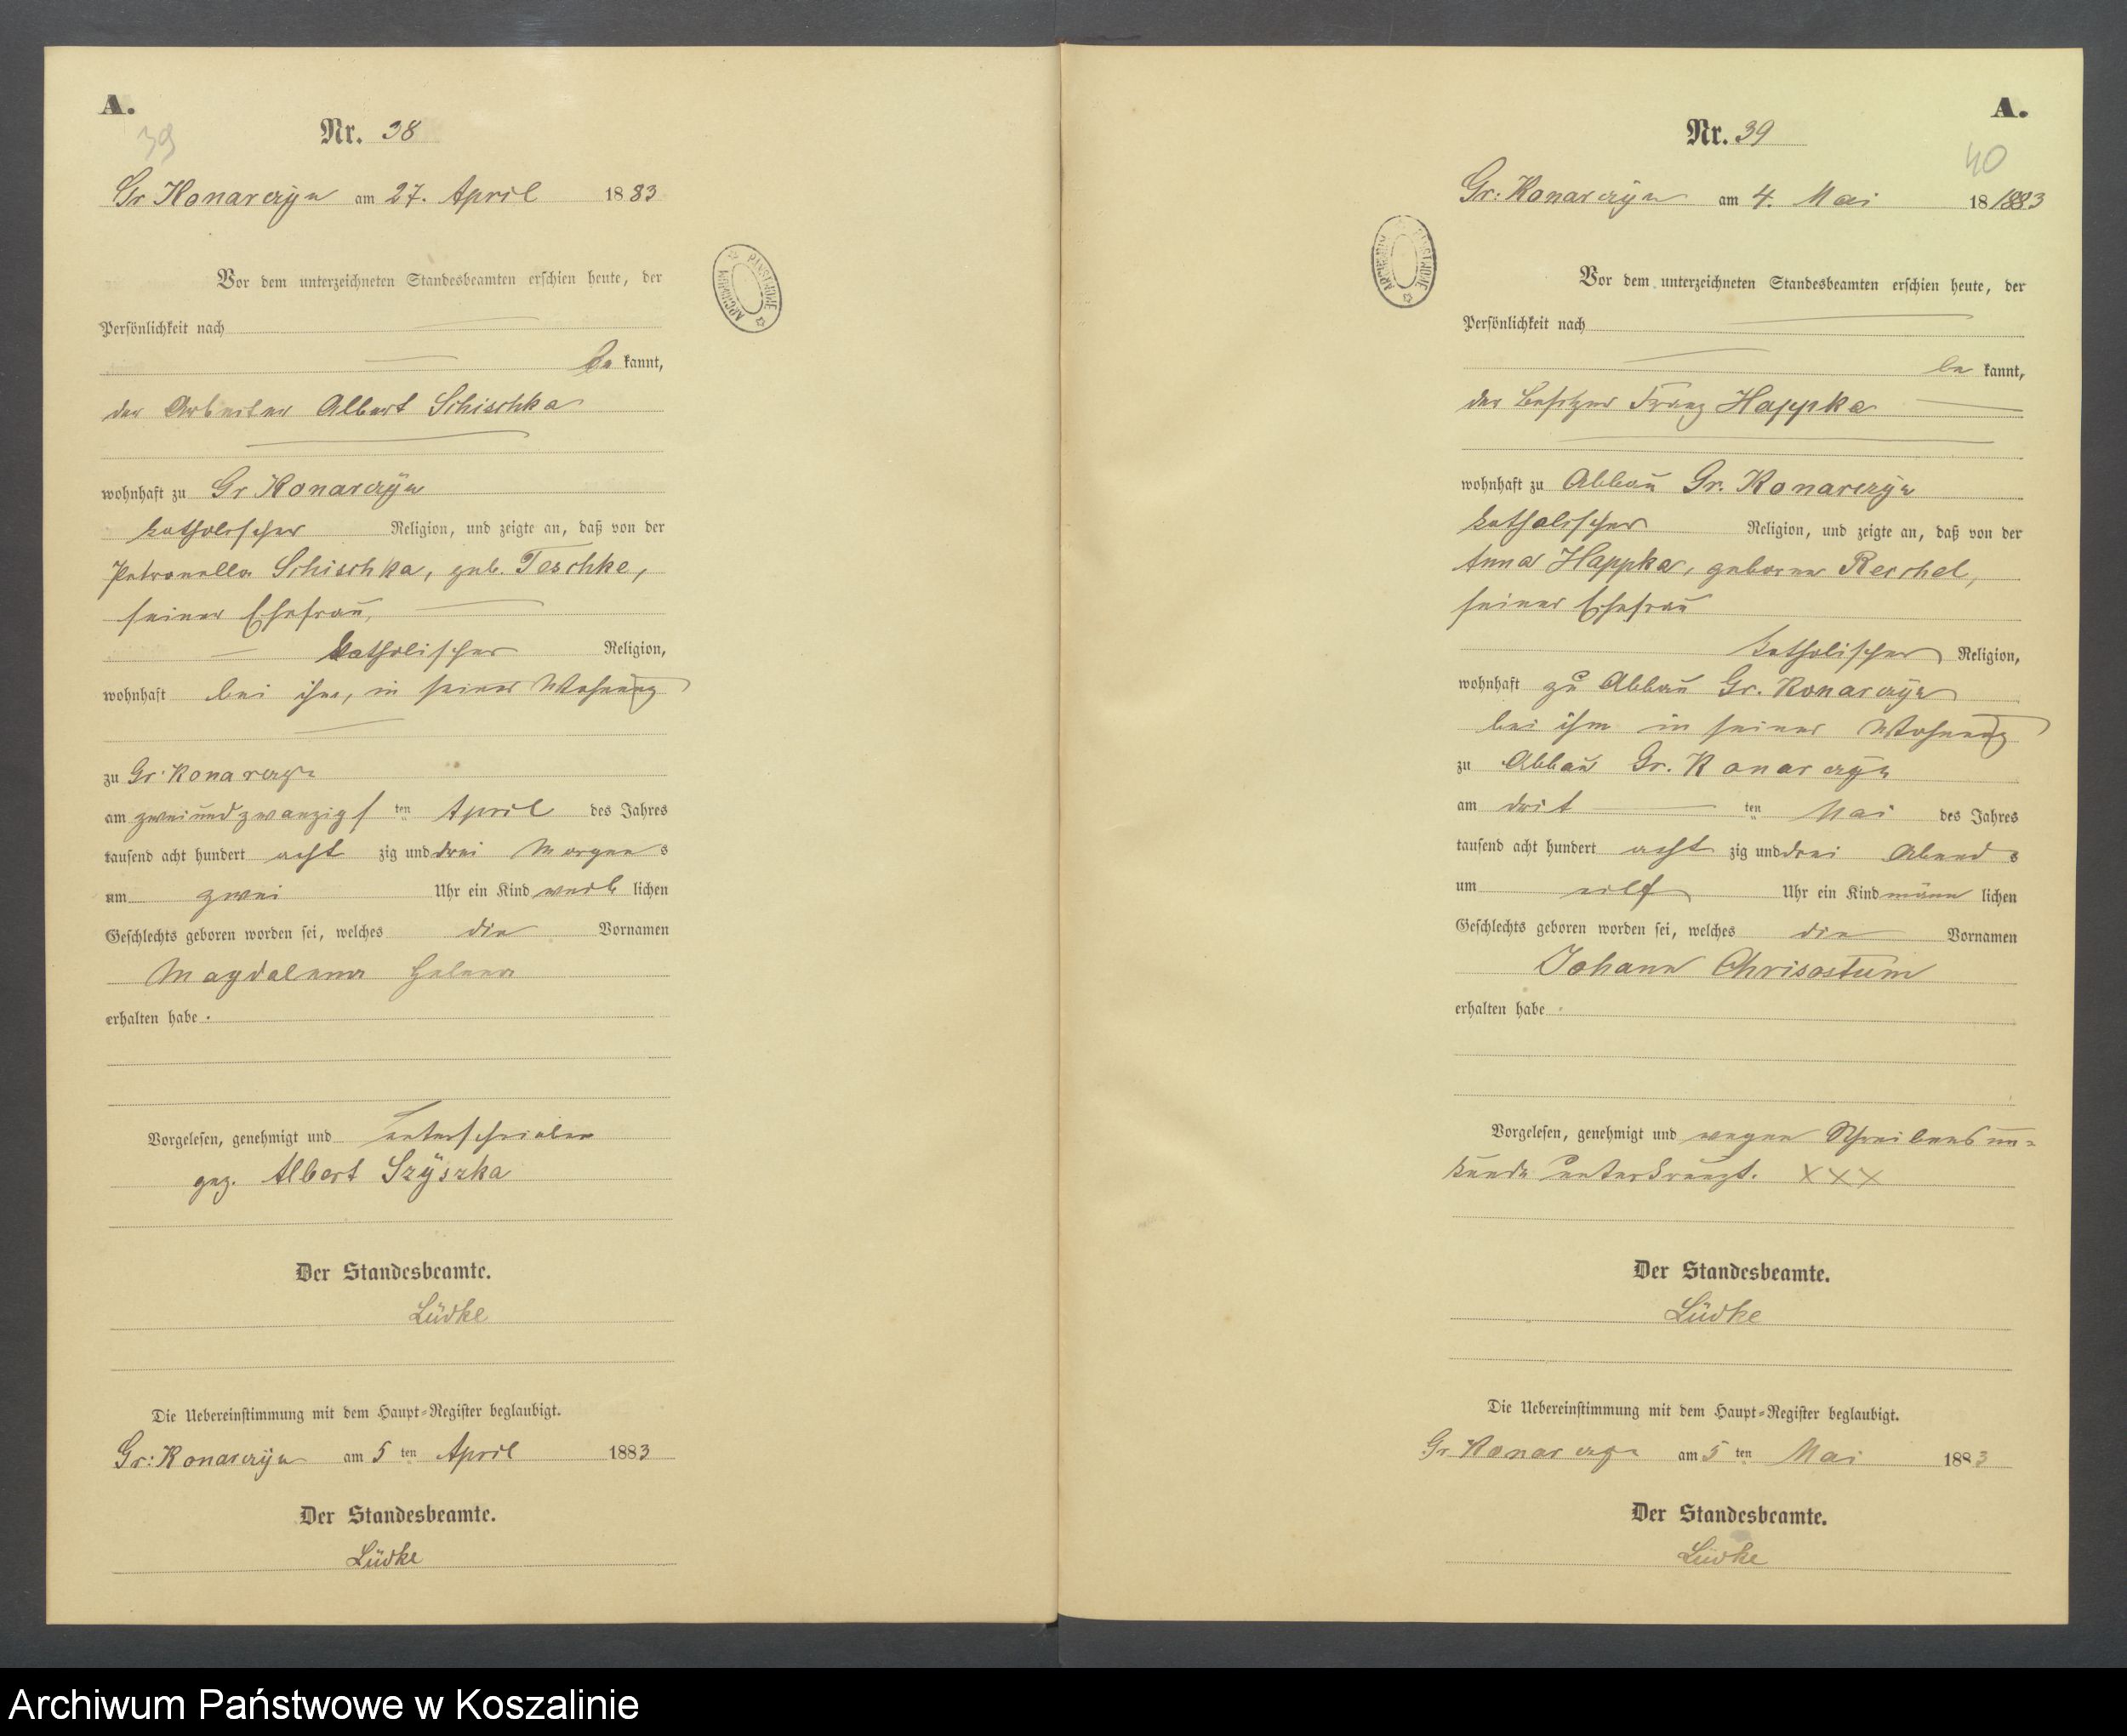 A.
39
Nr. 38
Gr Konarczyn am 27. April 1883
ARCHIWUM PAŃSTWOWE
Vor dem unterzeichneten Standesbeamten erschien heute, der
Persönlichkeit nach
be kannt,
der Arbeiter Albert Schischka
wohnhaft zu Gr Konarczyn
katholischer Religion, und zeigte an, daß von der
Petronella Schischka, geb. Teschke,
seiner Ehefrau,
katholischer Religion,
wohnhaft bei ihm, in seiner Wohnung
zu Gr. Konarczyn
am zweiundzwanzigs ten April des Jahres
tausend acht hundert acht zig und drei Morgen s
um zwei Uhr ein Kind weib lichen
Geschlechts geboren worden sei, welches die Vornamen
Magdalena Helena
erhalten habe.
Vorgelesen, genehmigt und unterschrieben
gez. Albert Szÿszka
Der Standesbeamte.
Lüdke
Die Uebereinstimmung mit dem Haupt-Register beglaubigt.
Gr: Konarczyn am 5 ten April 1883
Der Standesbeamte.
Lüdke
A.
40
Nr. 39
Gr: Konarczyn am 4. Mai 18 1883
ARCHIWUM PAŃSTWOWE
Vor dem unterzeichneten Standesbeamten erschien heute, der
Persönlichkeit nach
be kannt,
der Besitzer Franz Happka
wohnhaft zu Abbau Gr. Konarczyn
katholischer Religion, und zeigte an, daß von der
Anna Happka, geborne Reschel,
seiner Ehefrau
katholischer Religion,
wohnhaft zu Abbau Gr. Konarczyn
bei ihm in seiner Wohnung
zu Abbau Gr. Konarczyn
am drit ten Mai des Jahres
tausend acht hundert acht zig und drei Abend s
um eilf Uhr ein Kind männ lichen
Geschlechts geboren worden sei, welches die Vornamen
Johann Chrisostum
erhalten habe.
Vorgelesen, genehmigt und wegen Schreibensun-
kunde unterkreuzt. XXX
Der Standesbeamte.
Lüdke
Die Uebereinstimmung mit dem Haupt-Register beglaubigt.
Gr Konarczyn am 5 ten Mai 1883
Der Standesbeamte.
Lüdke
Archiwum Państwowe w Koszalinie